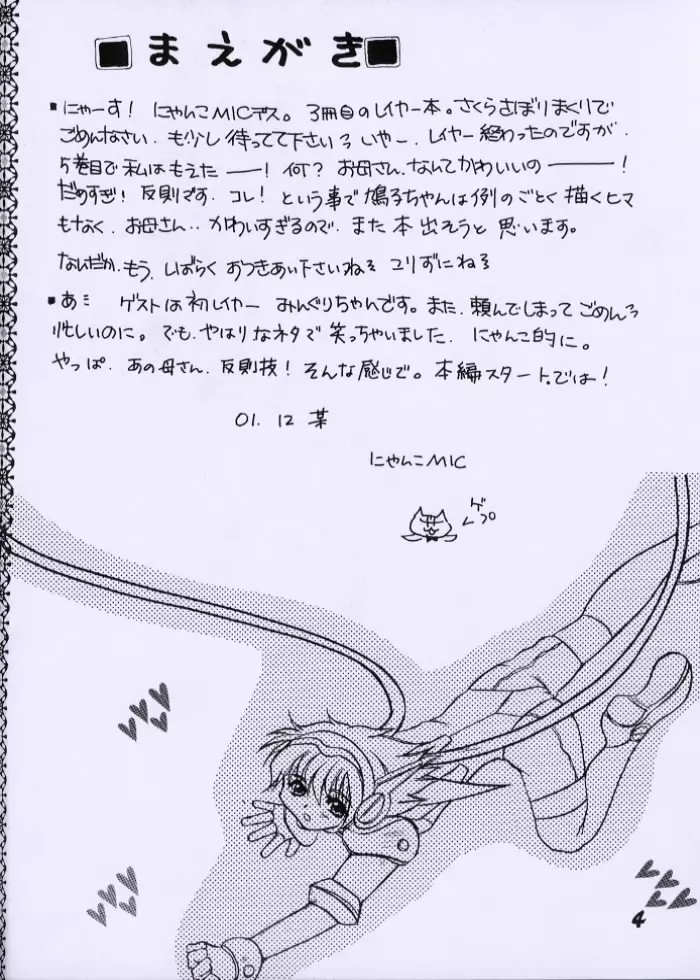 まえがき
▪にゃーす! にゃんこMICデス。3冊目のレイヤー本。さくらさぼりまくりで
ごめんなさい. も少し待ってて下さいろ いやー. レイヤー終わったのですが.
5巻目で私はもえたーー! 何? お母さん、なんてかわいいのーーー!
だめすぎ! 反則です. コレ! という事で鳩子ちゃんは例のごとく描くヒマ
もなく. お母さん‥ かわいすぎるので. また本出そうと思います。
なんだか.もう. しばらく おつきあい下さいね こりずにね
▪あ ゲストは初レイヤー みんぐりちゃんです。また.頼んでしまってごめん
忙しいのに。でも.やはりなネタで笑っちゃいました. にゃんこ的に。
やっぱ. あの母さん. 反則技! そんな感じで。本編スタート.では!
01. 12 某
にゃんこMIC
ゲプ
4